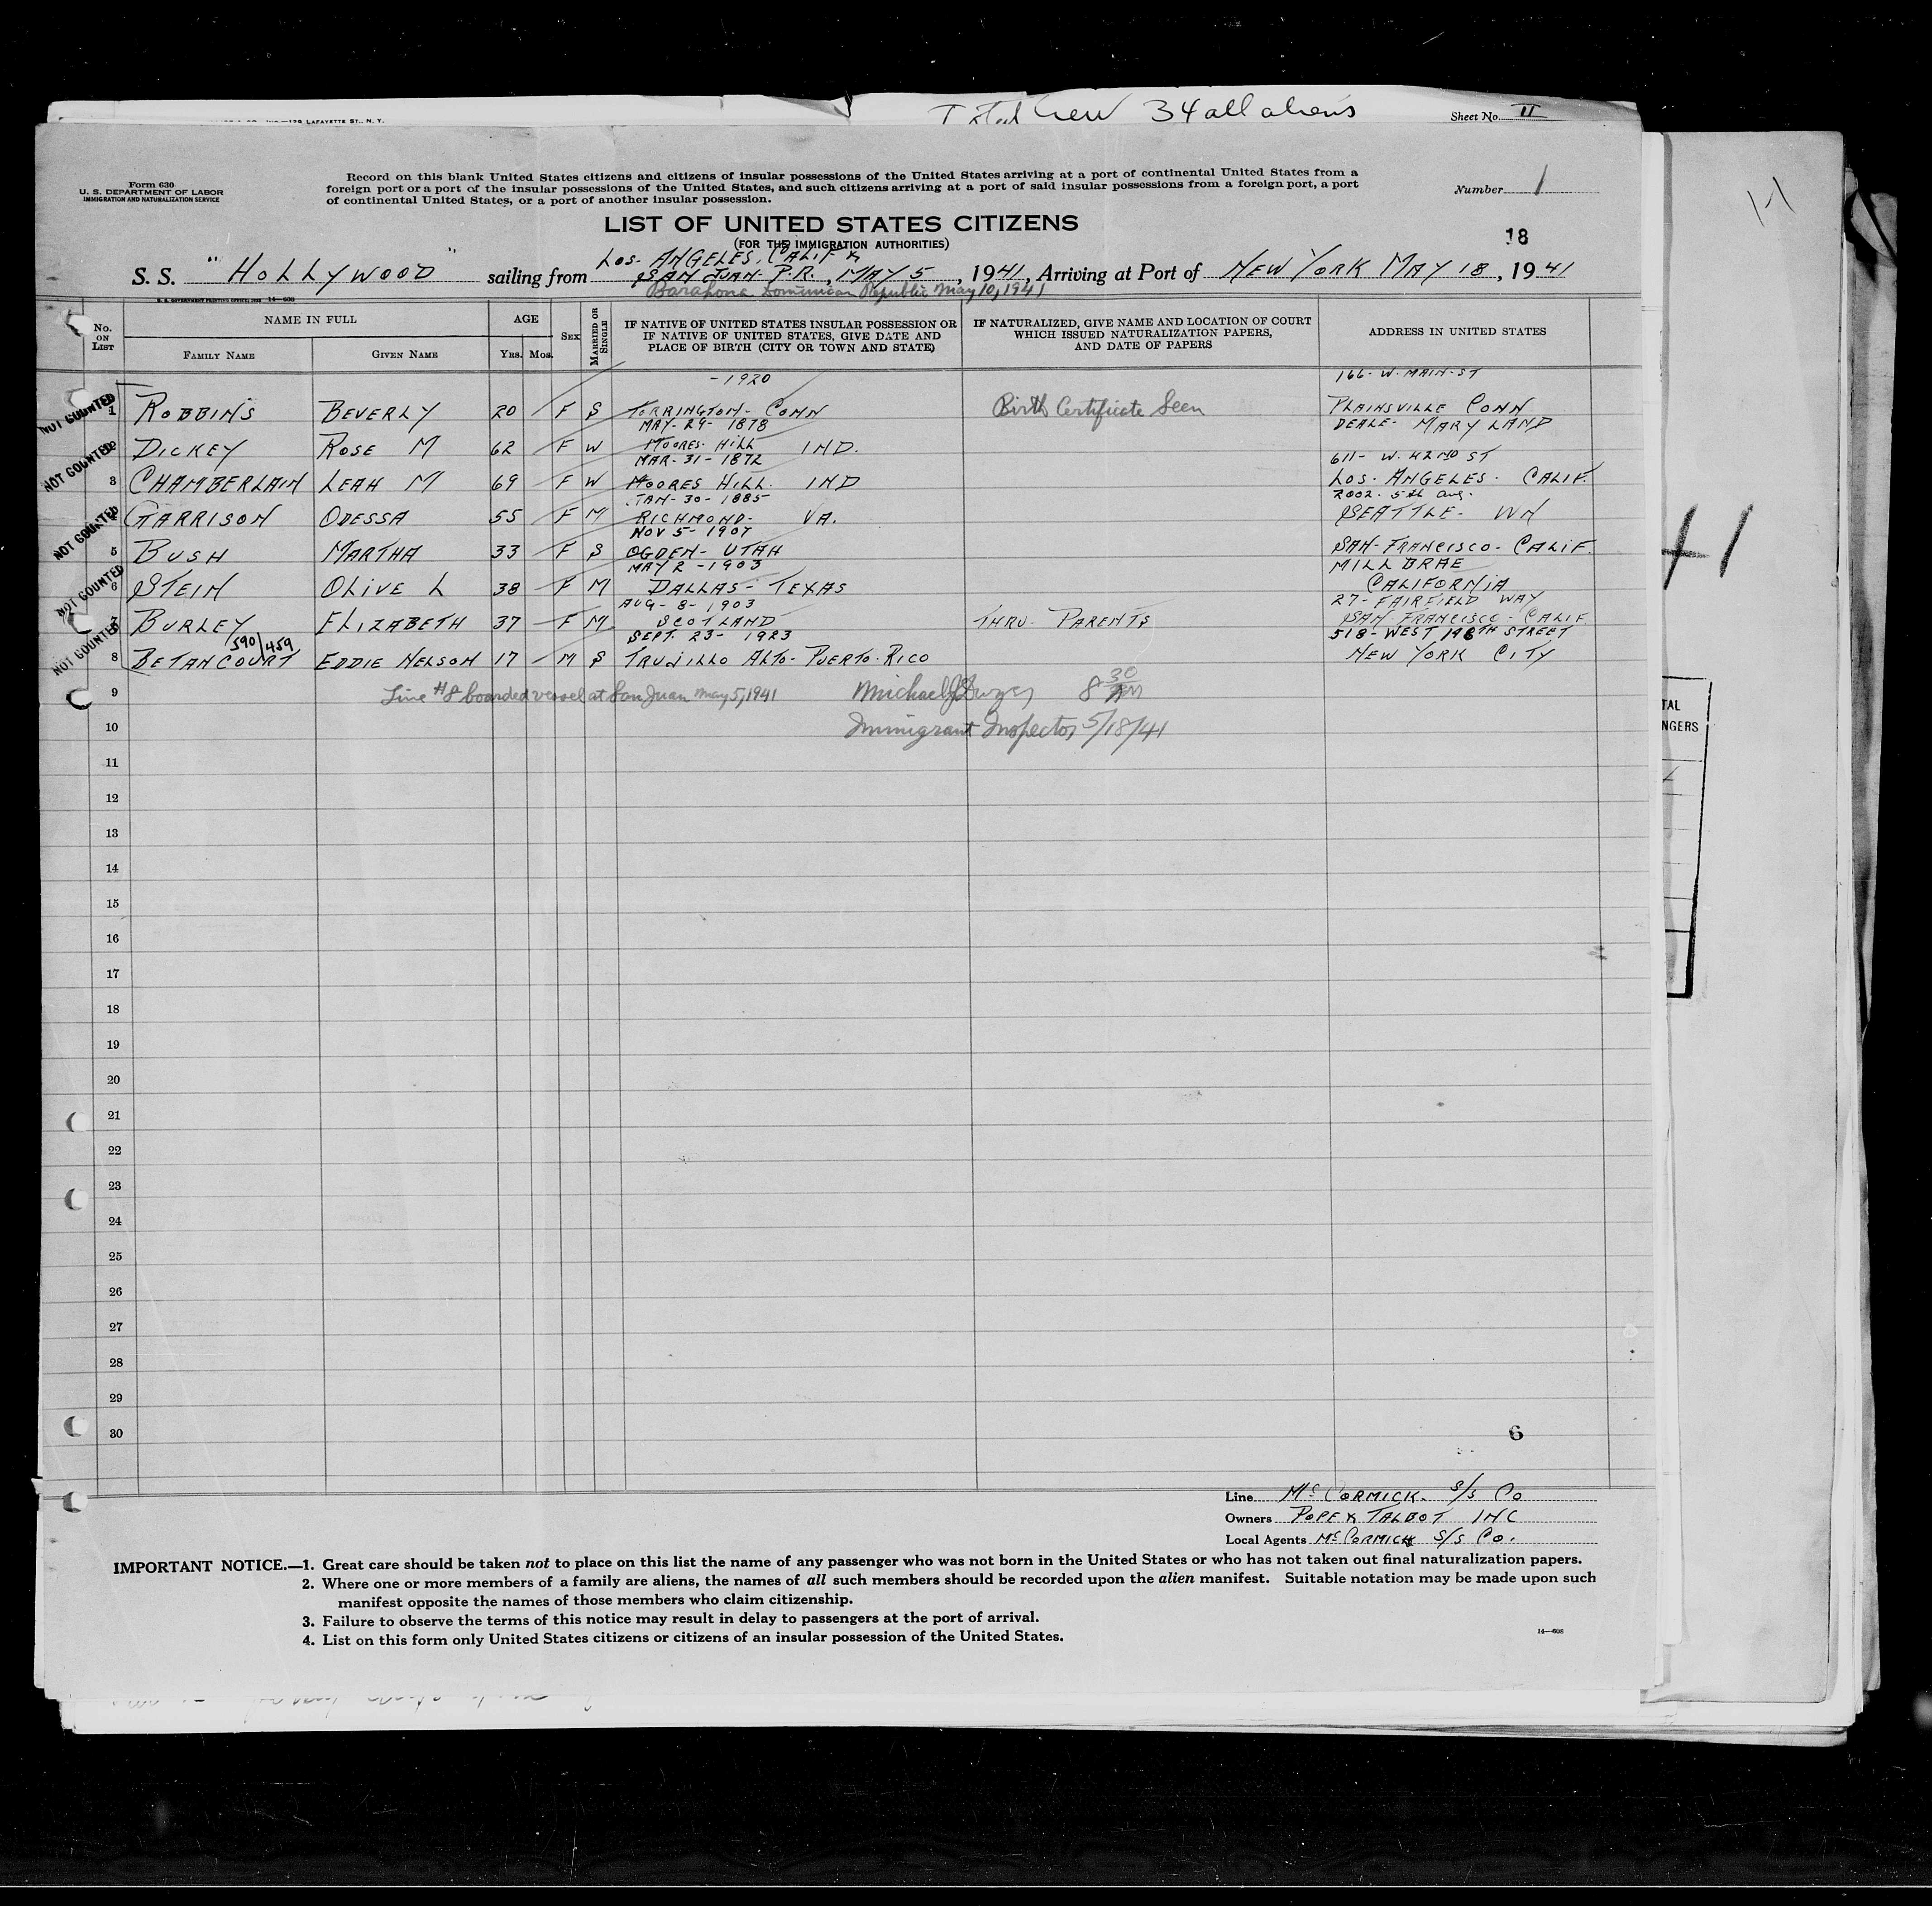 139 LAFAYETTE ST., N. Y.
Total Crew 34 all aliens
Sheet No. II
Form 630
U. S. DEPARTMENT OF LABOR
IMMIGRATION AND NATURALIZATION SERVICE
Record on this blank United States citizens and citizens of insular possessions of the United States arriving at a port of continental United States from a
foreign port or a port of the insular possessions of the United States, and such citizens arriving at a port of said insular possessions from a foreign port, a port
of continental United States, or a port of another insular possession.
Number 1
LIST OF UNITED STATES CITIZENS
(FOR THE IMMIGRATION AUTHORITIES)
18
LOS- ANGELES, CALIF &
S. S. "HOLLYWOOD" sailing from SAN JUAN- P.R., MAY 5, 1941, Arriving at Port of NEW YORK MAY 18, 1941
Barahona Dominican Republic May 10, 1941
U. S. GOVERNMENT PRINTING OFFICE: 14—608
No. ON LIST
NAME IN FULL
FAMILY NAME GIVEN NAME
AGE
YRS. MOS.
SEX
MARRIED OR SINGLE
IF NATIVE OF UNITED STATES INSULAR POSSESSION OR
IF NATIVE OF UNITED STATES, GIVE DATE AND
PLACE OF BIRTH (CITY OR TOWN AND STATE)
IF NATURALIZED, GIVE NAME AND LOCATION OF COURT
WHICH ISSUED NATURALIZATION PAPERS,
AND DATE OF PAPERS
ADDRESS IN UNITED STATES
-1920 166- W. MAIN- ST
NOT COUNTED 1 ROBBINS BEVERLY 20 F S TORRINGTON- CONN Birth Certificate Seen PLAINSVILLE CONN
MAY- 29- 1878 DEALE- MARYLAND
NOT COUNTED 2 DICKEY ROSE M 62 F W MOORES- HILL IND.
MAR- 31- 1872 611- W. 42ND ST
3 CHAMBERLAIN LEAH M 69 F W MOORES HILL. IND LOS- ANGELES- CALIF.
JAN- 30- 1885 2002- 5th Ave.
NOT COUNTED 4 GARRISON ODESSA 55 F M RICHMOND- VA. SEATTLE- WN
NOV 5- 1907
5 BUSH MARTHA 33 F S OGDEN- UTAH SAN- FRANCISCO- CALIF.
MAY 2- 1903 MILLBRAE
NOT COUNTED 6 STEIN OLIVE L 38 F M DALLAS- TEXAS CALIFORNIA
AUG- 8- 1903 27- FAIRFIELD WAY
7 BURLEY ELIZABETH 37 F M SCOTLAND THRU- PARENTS SAN- FRANCISCO- CALIF
590/459 SEPT. 23- 1923 518- WEST STREET
NOT COUNTED 8 BETANCOURT EDDIE NELSON 17 M S TRUJILLO ALTO- PUERTO- RICO NEW YORK CITY
9 Line #8 boarded vessel at San Juan May 5, 1941 Michael J 8 30 AM
10 Immigrant Inspector 5/18/41
11
12
13
14
15
16
17
18
19
20
21
22
23
24
25
26
27
28
29
30
6
Line McCORMICK. S/S CO
Owners POPE & TALBOT INC
Local Agents McCORMICK S/S CO.
IMPORTANT NOTICE.—1. Great care should be taken not to place on this list the name of any passenger who was not born in the United States or who has not taken out final naturalization papers.
2. Where one or more members of a family are aliens, the names of all such members should be recorded upon the alien manifest. Suitable notation may be made upon such
manifest opposite the names of those members who claim citizenship.
3. Failure to observe the terms of this notice may result in delay to passengers at the port of arrival.
4. List on this form only United States citizens or citizens of an insular possession of the United States.
14—608
41
TAL
NGERS